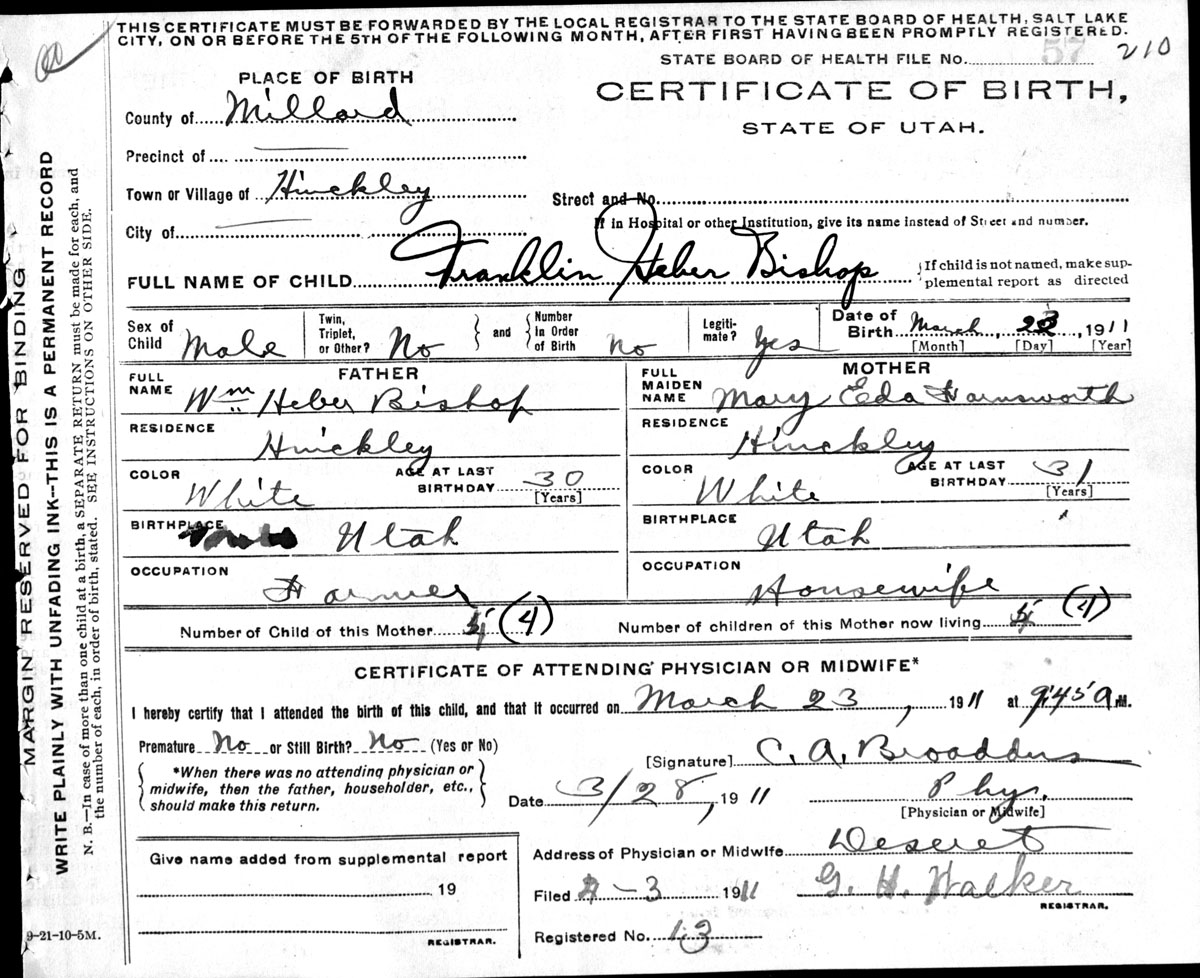 THIS CERTIFICATE MUST BE FORWARDED BY THE LOCAL REGISTRAR TO THE STATE BOARD OF HEALTH, SALT LAKE
CITY, ON OR BEFORE THE 5TH OF THE FOLLOWING MONTH, AFTER FIRST HAVING BEEN PROMPTLY REGISTERED.
STATE BOARD OF HEALTH FILE NO. 57 210
PLACE OF BIRTH
CERTIFICATE OF BIRTH,
STATE OF UTAH.
County of Millard
Precinct of
Town or Village of Hinckley
Street and No.
If in Hospital or other Institution, give its name instead of Street and number.
City of
FULL NAME OF CHILD Franklin Heber Bishop
If child is not named, make sup-
plemental report as directed
Sex of Child Male
Twin, Triplet, or Other? No
and
Number In Order of Birth no
Legiti-mate? Yes
Date of Birth March, 23, 1911
[Month] [Day] [Year]
FATHER
FULL NAME Wm Heber Bishop
RESIDENCE Hinckley
COLOR White
AGE AT LAST BIRTHDAY 30 [Years]
BIRTHPLACE Utah
OCCUPATION Farmer
MOTHER
FULL MAIDEN NAME Mary Eda Farnsworth
RESIDENCE Hinckley
COLOR White
AGE AT LAST BIRTHDAY 31 [Years]
BIRTHPLACE Utah
OCCUPATION Housewife
Number of Child of this Mother (4)
Number of children of this Mother now living (4)
CERTIFICATE OF ATTENDING PHYSICIAN OR MIDWIFE*
I hereby certify that I attended the birth of this child, and that it occurred on March 23, 1911 at 9:45 a M.
Premature No or Still Birth? No (Yes or No)
[Signature] C. A. Broaddus
*When there was no attending physician or
midwife, then the father, householder, etc.,
should make this return.
Date 3/28, 1911
Phy.
[Physician or Midwife]
Give name added from supplemental report
19
REGISTRAR.
Address of Physician or Midwife Deseret
Filed 4-3 1911 G. H. Walker
REGISTRAR.
Registered No. 13
9-21-10-5M.
MARGIN RESERVED FOR BINDING
WRITE PLAINLY WITH UNFADING INK--THIS IS A PERMANENT RECORD
N. B.—In case of more than one child at a birth, a SEPARATE RETURN must be made for each, and
the number of each, in order of birth, stated. SEE INSTRUCTIONS ON OTHER SIDE.